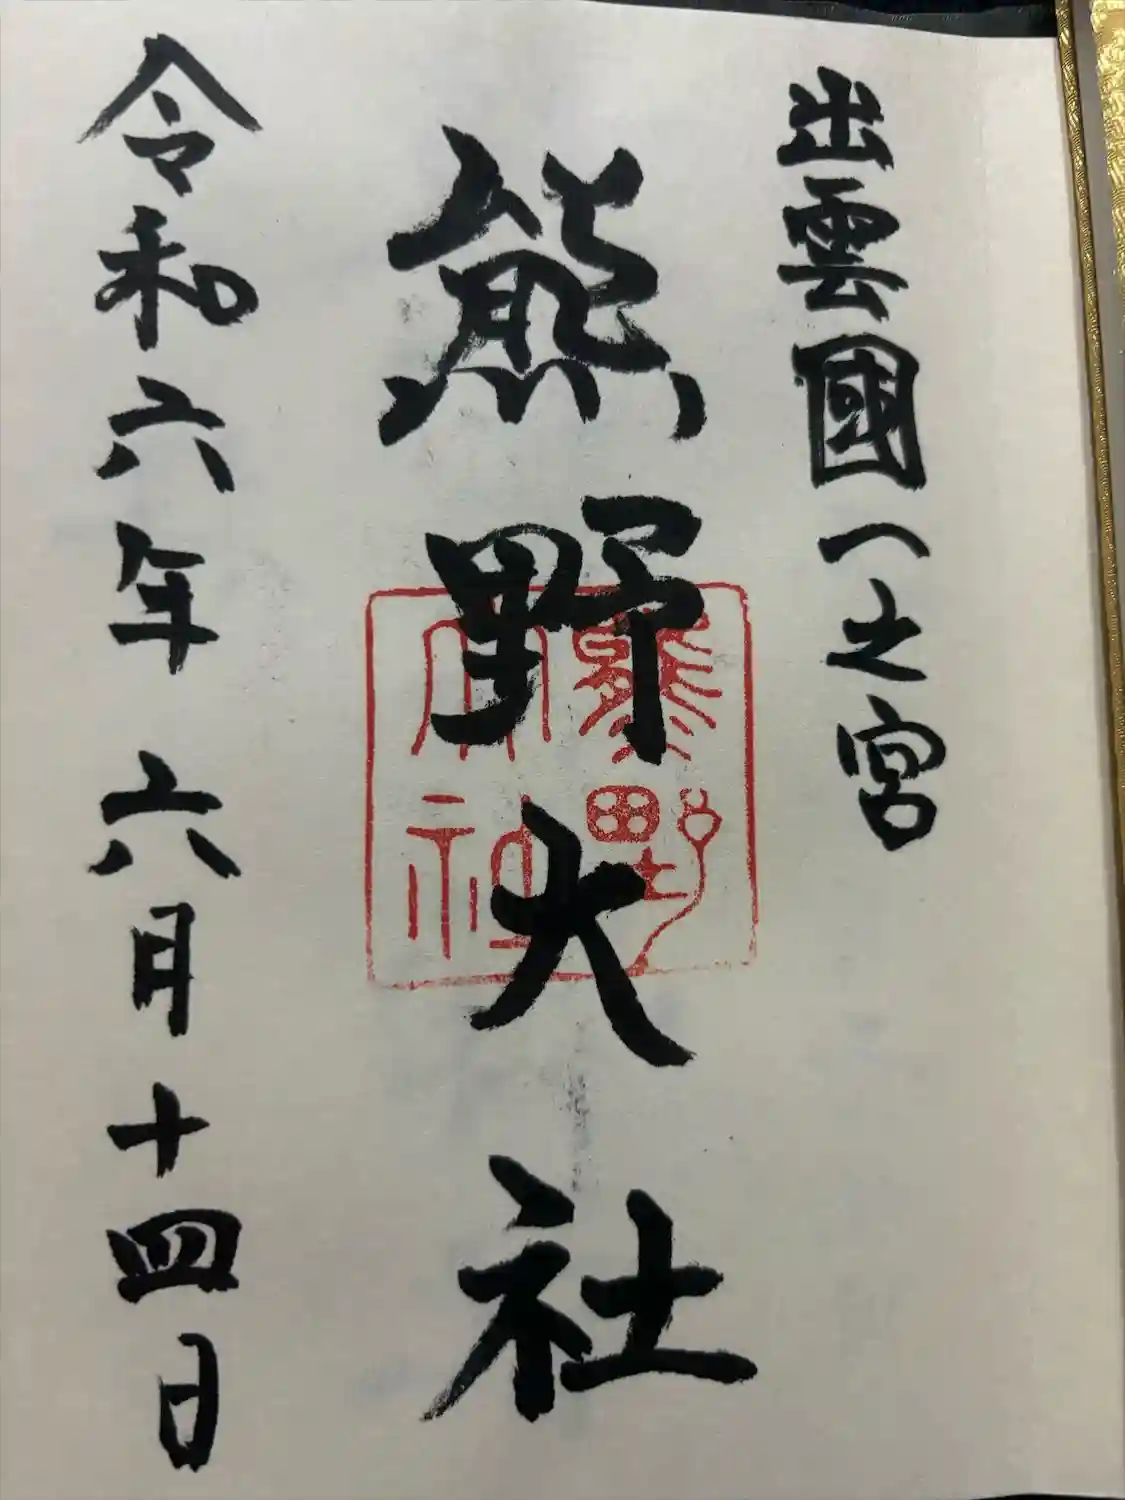 出雲國一之宮
熊野大社
熊野
大社
令和六年 六月十四日